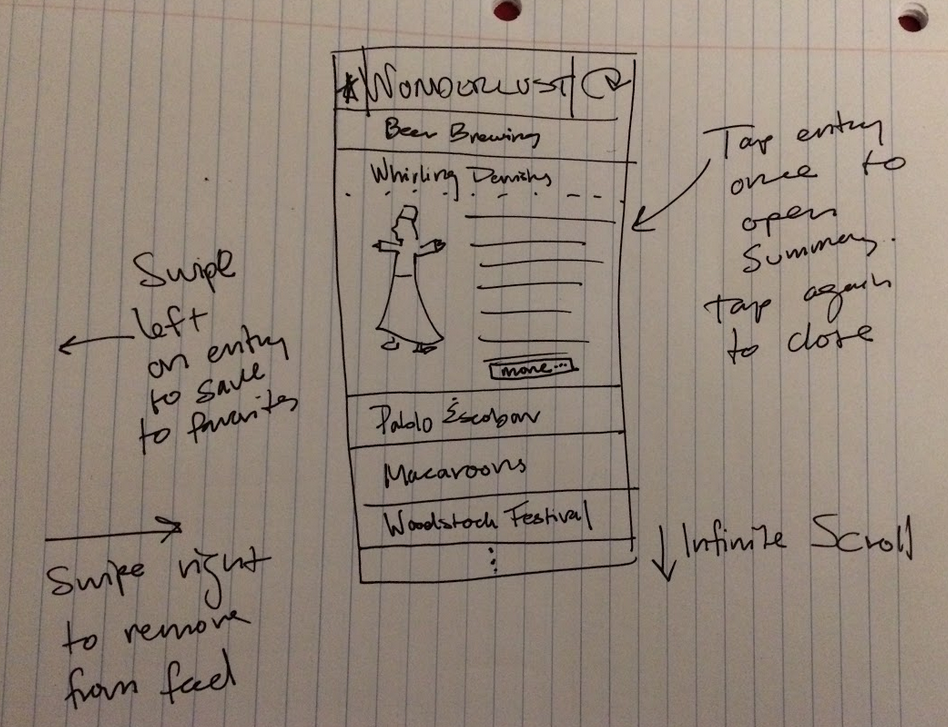 WONDERLUST
Beer Brewing
Whirling Dervishs
more...
Pablo Escobar
Macaroons
Woodstock Festival
Tap entry
once to
open
Summary.
tap again
to close
Swipe
left
on entry
to save
to favorites
Swipe right
to remove
from feed
Infinite Scroll